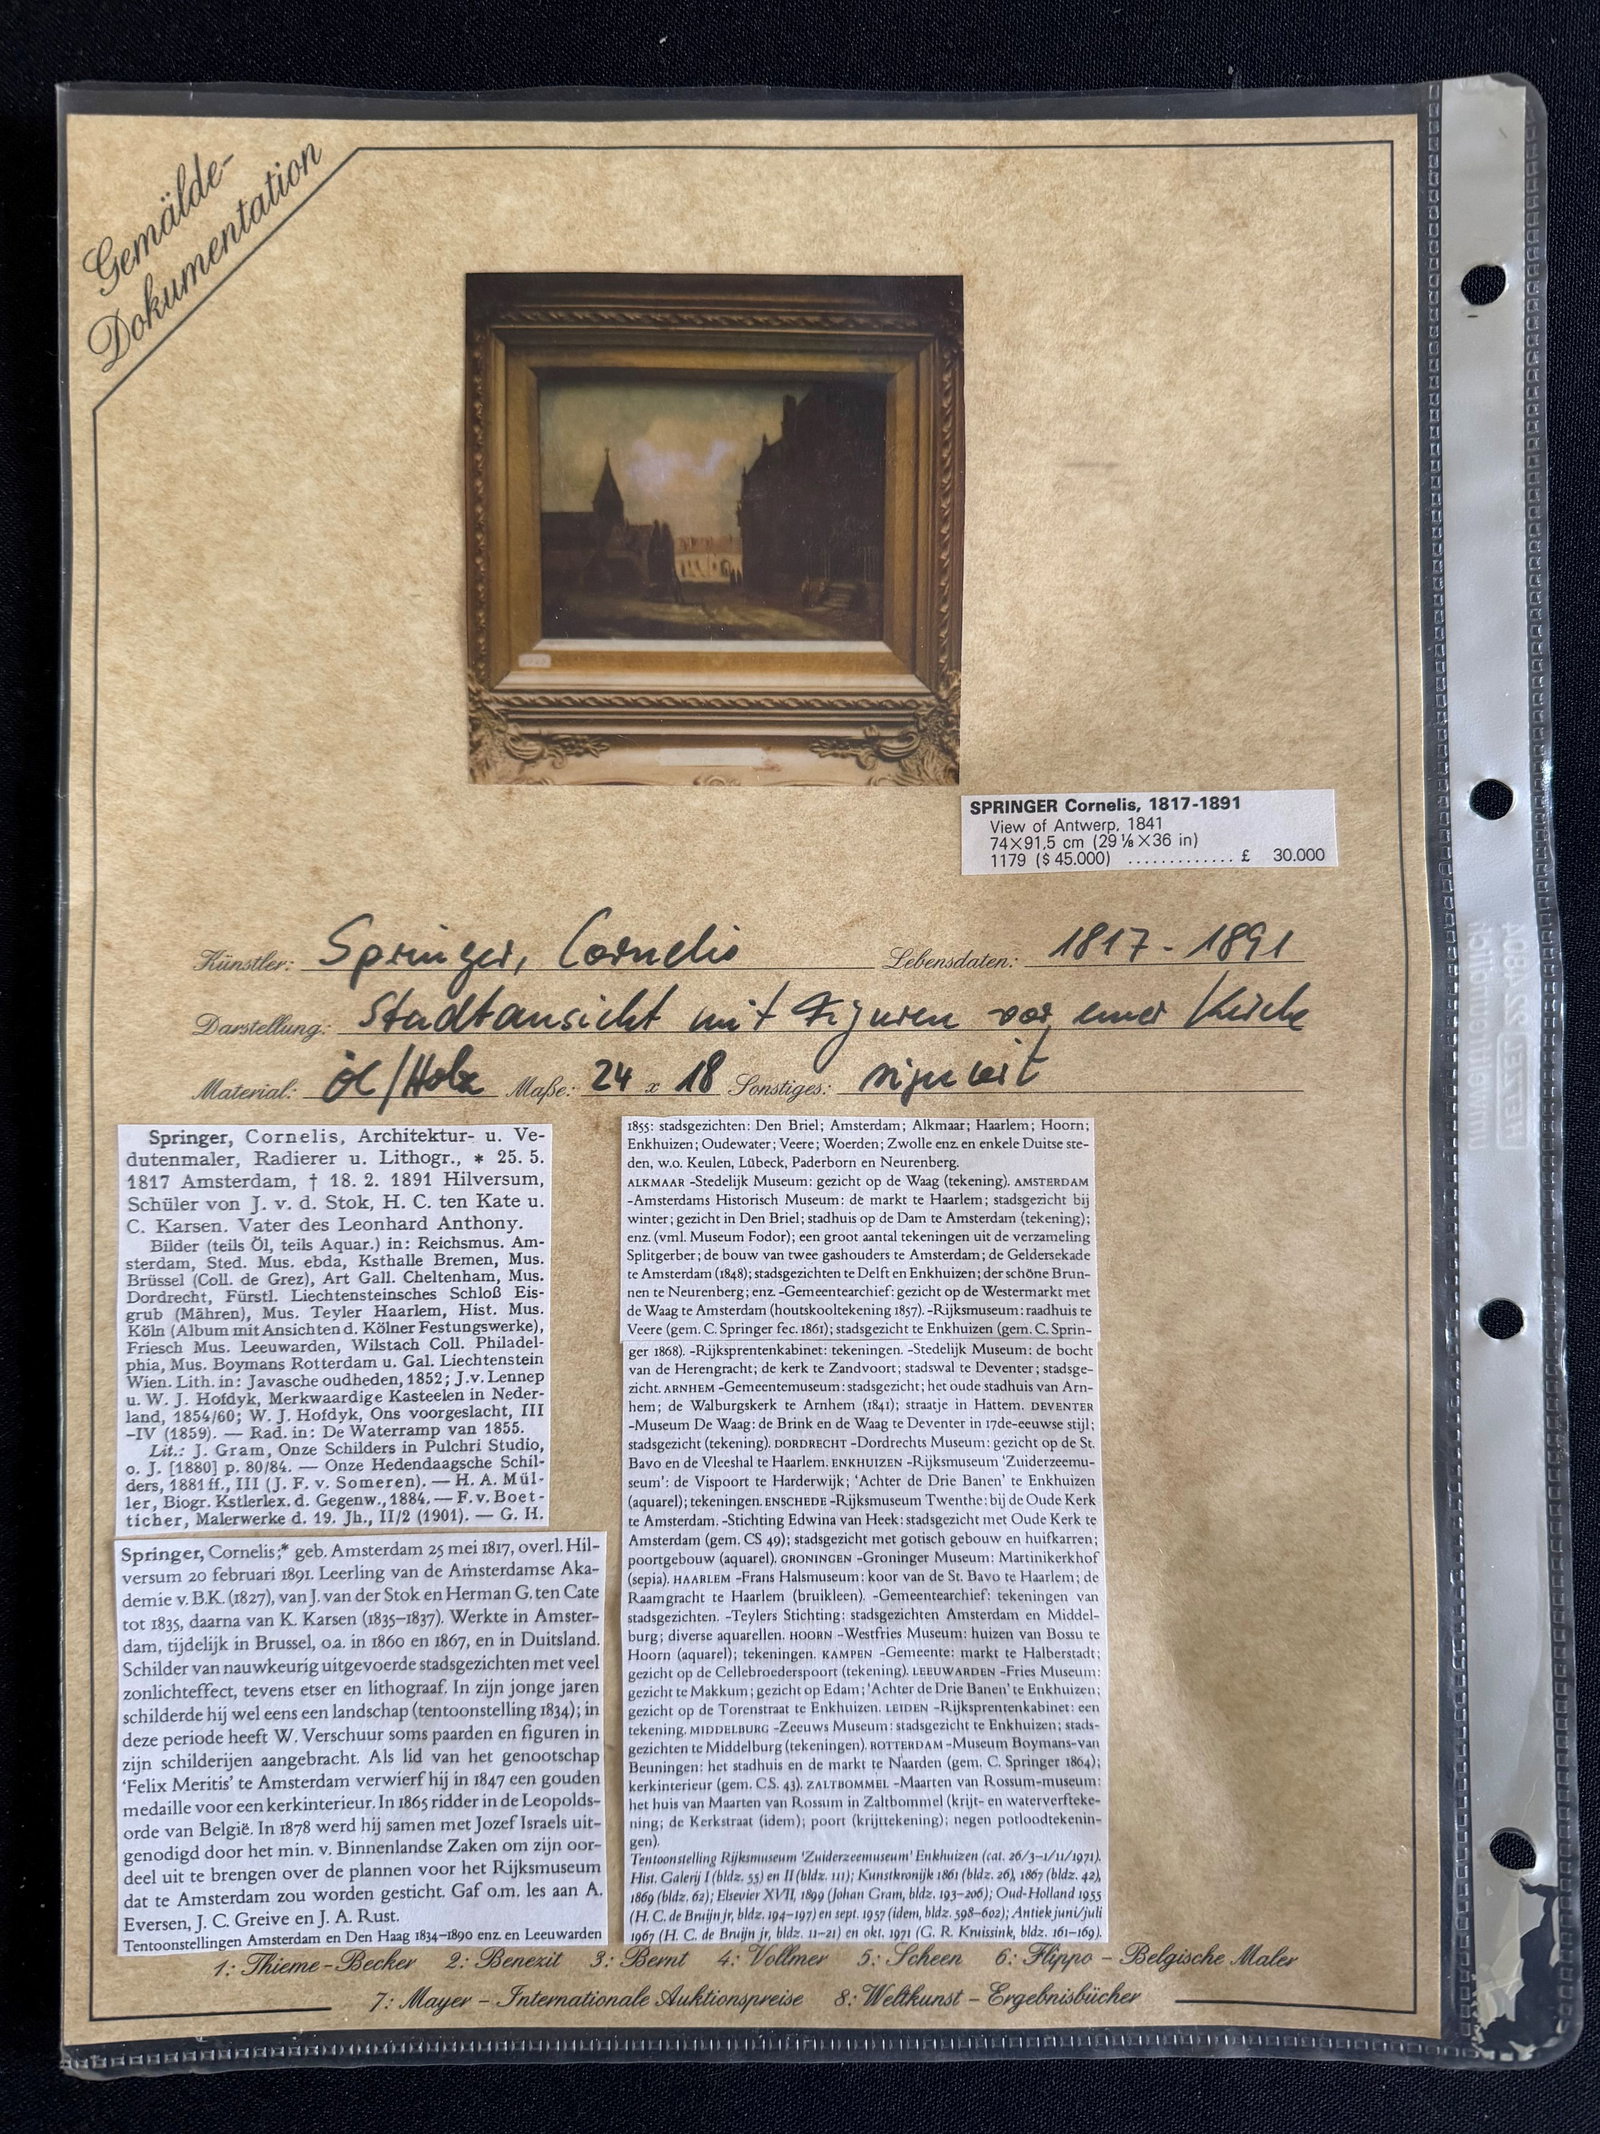 Gemälde-
Dokumentation
SPRINGER Cornelis, 1817-1891
View of Antwerp, 1841
74×91,5 cm (29⅛×36 in)
1179 ($ 45.000) ............. £ 30.000
Künstler: Springer, Cornelis Lebensdaten: 1817 - 1891
Darstellung: Stadtansicht mit Figuren vor einer Kirche
Material: Öl/Holz Maße: 24 x 18 Sonstiges: signiert
Springer, Cornelis, Architektur- u. Ve-
dutenmaler, Radierer u. Lithogr., * 25. 5.
1817 Amsterdam, † 18. 2. 1891 Hilversum,
Schüler von J. v. d. Stok, H. C. ten Kate u.
C. Karsen. Vater des Leonhard Anthony.
Bilder (teils Öl, teils Aquar.) in: Reichsmus. Am-
sterdam, Sted. Mus. ebda, Ksthalle Bremen, Mus.
Brüssel (Coll. de Grez), Art Gall. Cheltenham, Mus.
Dordrecht, Fürstl. Liechtensteinsches Schloß Eis-
grub (Mähren), Mus. Teyler Haarlem, Hist. Mus.
Köln (Album mit Ansichten d. Kölner Festungswerke),
Friesch Mus. Leeuwarden, Wilstach Coll. Philadel-
phia, Mus. Boymans Rotterdam u. Gal. Liechtenstein
Wien. Lith. in: Javasche oudheden, 1852; J. v. Lennep
u. W. J. Hofdyk, Merkwaardige Kasteelen in Neder-
land, 1854/60; W. J. Hofdyk, Ons voorgeslacht, III
-IV (1859). — Rad. in: De Waterramp van 1855.
Lit.: J. Gram, Onze Schilders in Pulchri Studio,
o. J. [1880] p. 80/84. — Onze Hedendaagsche Schil-
ders, 1881 ff., III (J. F. v. Someren). — H. A. Mül-
ler, Biogr. Kstlerlex. d. Gegenw., 1884. — F. v. Boet-
ticher, Malerwerke d. 19. Jh., II/2 (1901). — G. H.
Springer, Cornelis;* geb. Amsterdam 25 mei 1817, overl. Hil-
versum 20 februari 1891. Leerling van de Amsterdamse Aka-
demie v. B.K. (1827), van J. van der Stok en Herman G. ten Cate
tot 1835, daarna van K. Karsen (1835–1837). Werkte in Amster-
dam, tijdelijk in Brussel, o.a. in 1860 en 1867, en in Duitsland.
Schilder van nauwkeurig uitgevoerde stadsgezichten met veel
zonlichteffect, tevens etser en lithograaf. In zijn jonge jaren
schilderde hij wel eens een landschap (tentoonstelling 1834); in
deze periode heeft W. Verschuur soms paarden en figuren in
zijn schilderijen aangebracht. Als lid van het genootschap
'Felix Meritis' te Amsterdam verwierf hij in 1847 een gouden
medaille voor een kerkinterieur. In 1865 ridder in de Leopolds-
orde van België. In 1878 werd hij samen met Jozef Israels uit-
genodigd door het min. v. Binnenlandse Zaken om zijn oor-
deel uit te brengen over de plannen voor het Rijksmuseum
dat te Amsterdam zou worden gesticht. Gaf o.m. les aan A.
Eversen, J. C. Greive en J. A. Rust.
Tentoonstellingen Amsterdam en Den Haag 1834–1890 enz. en Leeuwarden
1855: stadsgezichten: Den Briel; Amsterdam; Alkmaar; Haarlem; Hoorn;
Enkhuizen; Oudewater; Veere; Woerden; Zwolle enz. en enkele Duitse ste-
den, w.o. Keulen, Lübeck, Paderborn en Neurenberg.
ALKMAAR -Stedelijk Museum: gezicht op de Waag (tekening). AMSTERDAM
-Amsterdams Historisch Museum: de markt te Haarlem; stadsgezicht bij
winter; gezicht in Den Briel; stadhuis op de Dam te Amsterdam (tekening);
enz. (vml. Museum Fodor); een groot aantal tekeningen uit de verzameling
Splitgerber; de bouw van twee gashouders te Amsterdam; de Geldersekade
te Amsterdam (1848); stadsgezichten te Delft en Enkhuizen; der schöne Brun-
nen te Neurenberg; enz. -Gemeentearchief: gezicht op de Westermarkt met
de Waag te Amsterdam (houtskooltekening 1857). -Rijksmuseum: raadhuis te
Veere (gem. C. Springer fec. 1861); stadsgezicht te Enkhuizen (gem. C. Sprin-
ger 1868). -Rijksprentenkabinet: tekeningen. -Stedelijk Museum: de bocht
van de Herengracht; de kerk te Zandvoort; stadswal te Deventer; stadsge-
zicht. ARNHEM -Gemeentemuseum: stadsgezicht; het oude stadhuis van Arn-
hem; de Walburgskerk te Arnhem (1841); straatje in Hattem. DEVENTER
-Museum De Waag: de Brink en de Waag te Deventer in 17de-eeuwse stijl;
stadsgezicht (tekening). DORDRECHT -Dordrechts Museum: gezicht op de St.
Bavo en de Vleeshal te Haarlem. ENKHUIZEN -Rijksmuseum 'Zuiderzeemu-
seum': de Vispoort te Harderwijk; 'Achter de Drie Banen' te Enkhuizen
(aquarel); tekeningen. ENSCHEDE -Rijksmuseum Twenthe: bij de Oude Kerk
te Amsterdam. -Stichting Edwina van Heek: stadsgezicht met Oude Kerk te
Amsterdam (gem. CS 49); stadsgezicht met gotisch gebouw en huifkarren;
poortgebouw (aquarel). GRONINGEN -Groninger Museum: Martinikerkhof
(sepia). HAARLEM -Frans Halsmuseum: koor van de St. Bavo te Haarlem; de
Raamgracht te Haarlem (bruikleen). -Gemeentearchief: tekeningen van
stadsgezichten. -Teylers Stichting: stadsgezichten Amsterdam en Middel-
burg; diverse aquarellen. HOORN -Westfries Museum: huizen van Bossu te
Hoorn (aquarel); tekeningen. KAMPEN -Gemeente: markt te Halberstadt;
gezicht op de Cellebroederspoort (tekening). LEEUWARDEN -Fries Museum:
gezicht te Makkum; gezicht op Edam; 'Achter de Drie Banen' te Enkhuizen;
gezicht op de Torenstraat te Enkhuizen. LEIDEN -Rijksprentenkabinet: een
tekening. MIDDELBURG -Zeeuws Museum: stadsgezicht te Enkhuizen; stads-
gezichten te Middelburg (tekeningen). ROTTERDAM -Museum Boymans-van
Beuningen: het stadhuis en de markt te Naarden (gem. C. Springer 1864);
kerkinterieur (gem. C.S. 43). ZALTBOMMEL -Maarten van Rossum-museum:
het huis van Maarten van Rossum in Zaltbommel (krijt- en waterverfteke-
ning; de Kerkstraat (idem); poort (krijttekening); negen potloodtekenin-
gen).
Tentoonstelling Rijksmuseum 'Zuiderzeemuseum' Enkhuizen (cat. 26/3–1/11/1971).
Hist. Galerij I (bldz. 55) en II (bldz. 111); Kunstkronijk 1861 (bldz. 26), 1867 (bldz. 42),
1869 (bldz. 62); Elsevier XVII, 1899 (Johan Gram, bldz. 193–206); Oud-Holland 1955
(H. C. de Bruijn jr, bldz. 194–197) en sept. 1957 (idem, bldz. 598–602); Antiek juni/juli
1967 (H. C. de Bruijn jr, bldz. 11–21) en okt. 1971 (G. R. Kruissink, bldz. 161–169).
1: Thieme-Becker 2: Benezit 3: Bernt 4: Vollmer 5: Scheen 6: Flippo - Belgische Maler
7: Mayer - Internationale Auktionspreise 8: Weltkunst - Ergebnisbücher